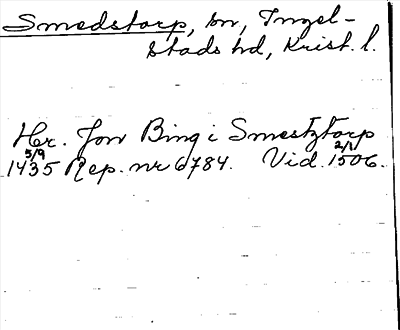 Smedstorp, sn, Ingel-
stads hd, Krist. l.
Hr. Jon Bing i Smestztorp
5/9 2/1
1435 Rep. nr 6784. Vid. 1506.